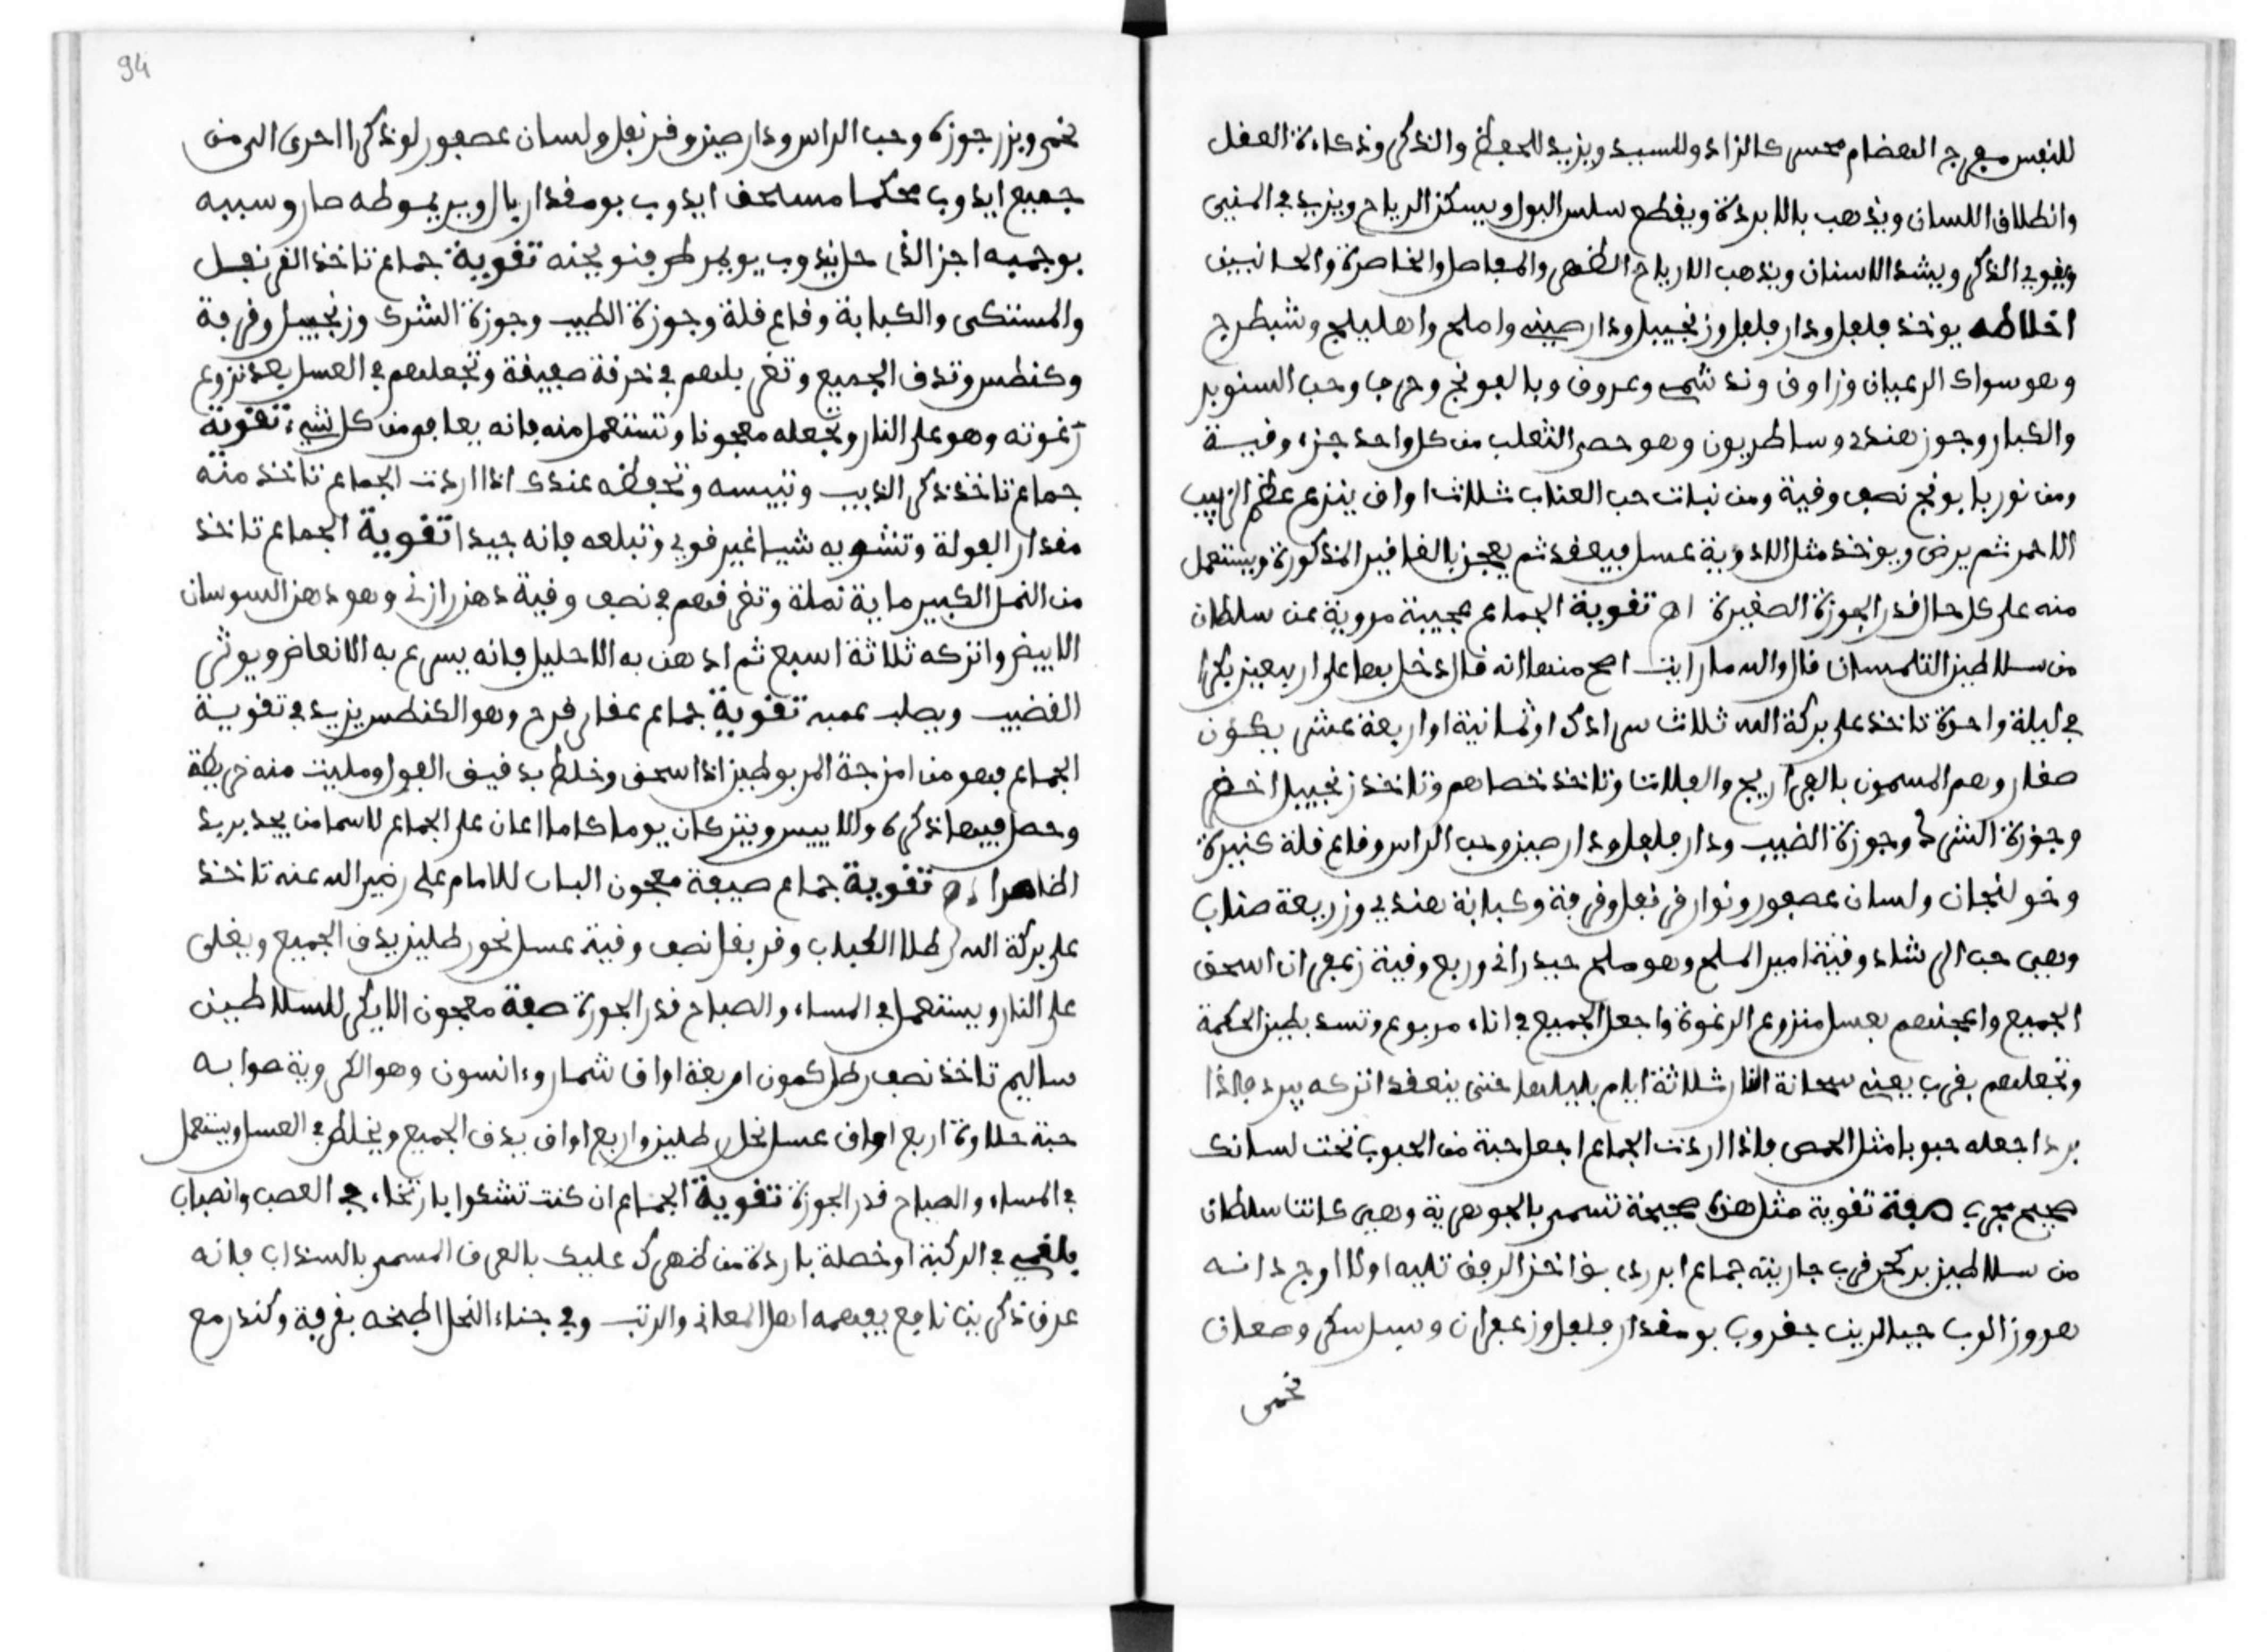 للنفس مفرج الهضام محسن كالزاد وللسبيد ويزيد للحفظ والذكر وذكاءة العقل
وانطلاق اللسان ويذهب بالابردة ويقطع سلس البول ويسكن الرياح ويزيد في المني
ويقوي الذكر ويشد الاسنان ويذهب الارياح الظهر والمفاصل والخاصرة والجانبين
اخلاطه يوخذ فلفل ودار فلفل وزنجبيل ودار صيني واملج واهليلج وشيطرج
وهو سواك الرعيان وزاوق وند شمس وعروق وبالبونج وحرجا وحب السنوبر
والكبار وجوز هندي وساطريون وهو خصى الثعلب من كل واحد جزء وقيسة
ومن نور بابونج نصف وقية ومن نبات حب العناب ثلاث اواق ينزع عظم الزبيب
الاحمر ثم يرض ويوخذ مثل الادوية عسل فيعقد ثم يعجن بالعقاقير المذكورة ويستعمل
منه على كل حال قدر الجوزة الصغيرة اه تقوية الجماع عجيبة مروية عن سلطان
من سلاطين التلمسان قال والله ما رايت اصح منها انه قال ادخل بها على اربعين بكرا
في ليلة واحدة تاخذ على بركة الله ثلاث سرادك او ثمانية او اربعة عشر يكون
صغار وهم المسمون بالفراريج والفلاتا وتاخذ خصاهم وتاخذ زنجبيل اخضر
وجوزة الشرك وجوزة الطيب ودار فلفل ودار صين وحب الراس وقاع قلة كبيرة
وخولنجان ولسان عصفور ونوار قرنفل وقرفة وكبابة هندي وزريعة صناب
وهي حب الرشاد وقية امير الملح وهو ملح حيدراني وربع وقية زعفران اسحق
الجميع واعجنهم بعسل منزوع الرغوة واجعل الجميع في اناء مربوع وتسد بطين الحكمة
وتجعلهم بقرب يعني سخانة النار ثلاثة ايام بليلها حتى ينعقد اتركه يبرد فاذا
برد اجعله حبوبا مثل الحمص فاذا اردت الجماع اجعل حبة من الحبوب تحت لسانك
صحيح مجرب صفة تقوية مثل هذه صحيحة تسمى بالجوهرية وهي كانت سلطان
من سلاطين بركجر قرب جاريته جماع ابردي
هوروز الوب جيد الريف جغروب بو مقدار فلفل وزعفران وسيل سكر وصعدان
نخمر
94
نخمر وبزر جوزة وحب الراس ودار صين وقرنفل ولسان عصفور لوذكرا احرى الرمن
جميع ايدوب محكما مساحق ايدوب بو مقدار بال وبير يموطه صار وسببه
بوجميه اجز الذي حل ايدوب يو يمر طر قنو يجنه تقوية جماع تاخذ القرنفل
والمستكى والكبابة وقاع قلة وجوزة الطيب وجوزة الشرك وزنجبيل وقرفة
وكنطس وتدق الجميع وتغربلهم في خرقة صفيقة وتجعلهم في العسل بعد نزوع
رغوته وهو على النار وتجعله معجونا وتستعمل منه فانه يعافي من كل شيء تقوية
جماع تاخذ ذكر الذيب وتيبسه وتحفظه عندك اذا اردت الجماع تاخذ منه
مقدار الفولة وتشويه شيا غير قوي وتبلعه فانه جيدا تقوية الجماع تاخذ
من النمل الكبير ماية نملة وتغرقهم في نصف وقية دهن رازني وهو دهن السوسان
الابيض واتركه ثلاثة اسبع ثم ادهن به الاحليل فانه يسرع به الانعاض ويوثر
القضيب ويصلب عصبه تقوية جماع عقار قرح وهو الكنطس يزيد في تقويـة
الجماع فهو من امزجة المربوطين اذا سحق وخلط بدقيق الفول ومليت منه خريطة
وحصل فيها ذكره والاييس ويترك ان يوما كاملا اعان على الجماع لاسما من يجد بريد
الظاهرا اه تقوية جماع صيفة معجون الباب للامام على رضي الله عنه تاخذ
على بركة الله رطلا الحباب وقريفل نصف وقية عسل نحو رطلين يدق الجميع ويغلى
على النار ويستعمل في المساء والصباح قدر الجوزة صفة معجون الايكر للسلاطين
ساليم تاخذ نصف رطل كمون اربعة اواق شمار وءانسون وهو الكروية صوابه
حبة حلاوة اربع اواق عسل نحل رطلين واربع اواق يدق الجميع ويخلط في العسل ويستعمل
في المساء والصباح قدر الجوزة تقوية الجماع ان كنت تشكوا بارتخاء في العصب وانصباب
بلغمي في الركبة او خصلة باردة من ظهرك عليك بالعرق المسمى بالسنداب فانه
عرق ذكرينا نافع يفهمه اهل المعاني والرتب وفي جناء النحل اطبخه بقرفة وكندر مع